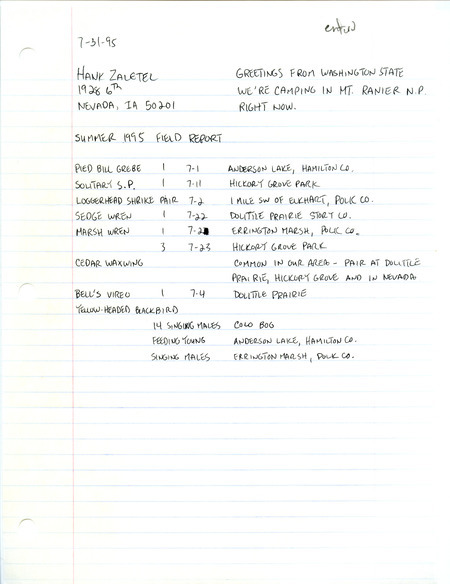 7-31-95
HANK ZALETEL
1928 6th
NEVADA, IA 50201
GREETINGS FROM WASHINGTON STATE
WE'RE CAMPING IN MT. RANIER N.P.
RIGHT NOW.
SUMMER 1995 FIELD REPORT
PIED BILL GREBE 1 7-1 ANDERSON LAKE, HAMILTON CO.
SOLITARY S.P. 1 7-11 HICKORY GROVE PARK
LOGGERHEAD SHRIKE PAIR 7-2 1 MILE SW OF ELKHART, POLK CO.
SEDGE WREN 1 7-22 DOLITTLE PRAIRIE STORY CO.
MARSH WREN 1 7-2 ERRINGTON MARSH, POLK CO.
3 7-23 HICKORY GROVE PARK
CEDAR WAXWING COMMON IN OUR AREA - PAIR AT DOLITTLE
PRAIRIE, HICKORY GROVE AND IN NEVADA
BELL'S VIREO 1 7-4 DOLITTLE PRAIRIE
YELLOW-HEADED BLACKBIRD
14 SINGING MALES COLO BOG
FEEDING YOUNG ANDERSON LAKE, HAMILTON CO.
SINGING MALES ERRINGTON MARSH, POLK CO.